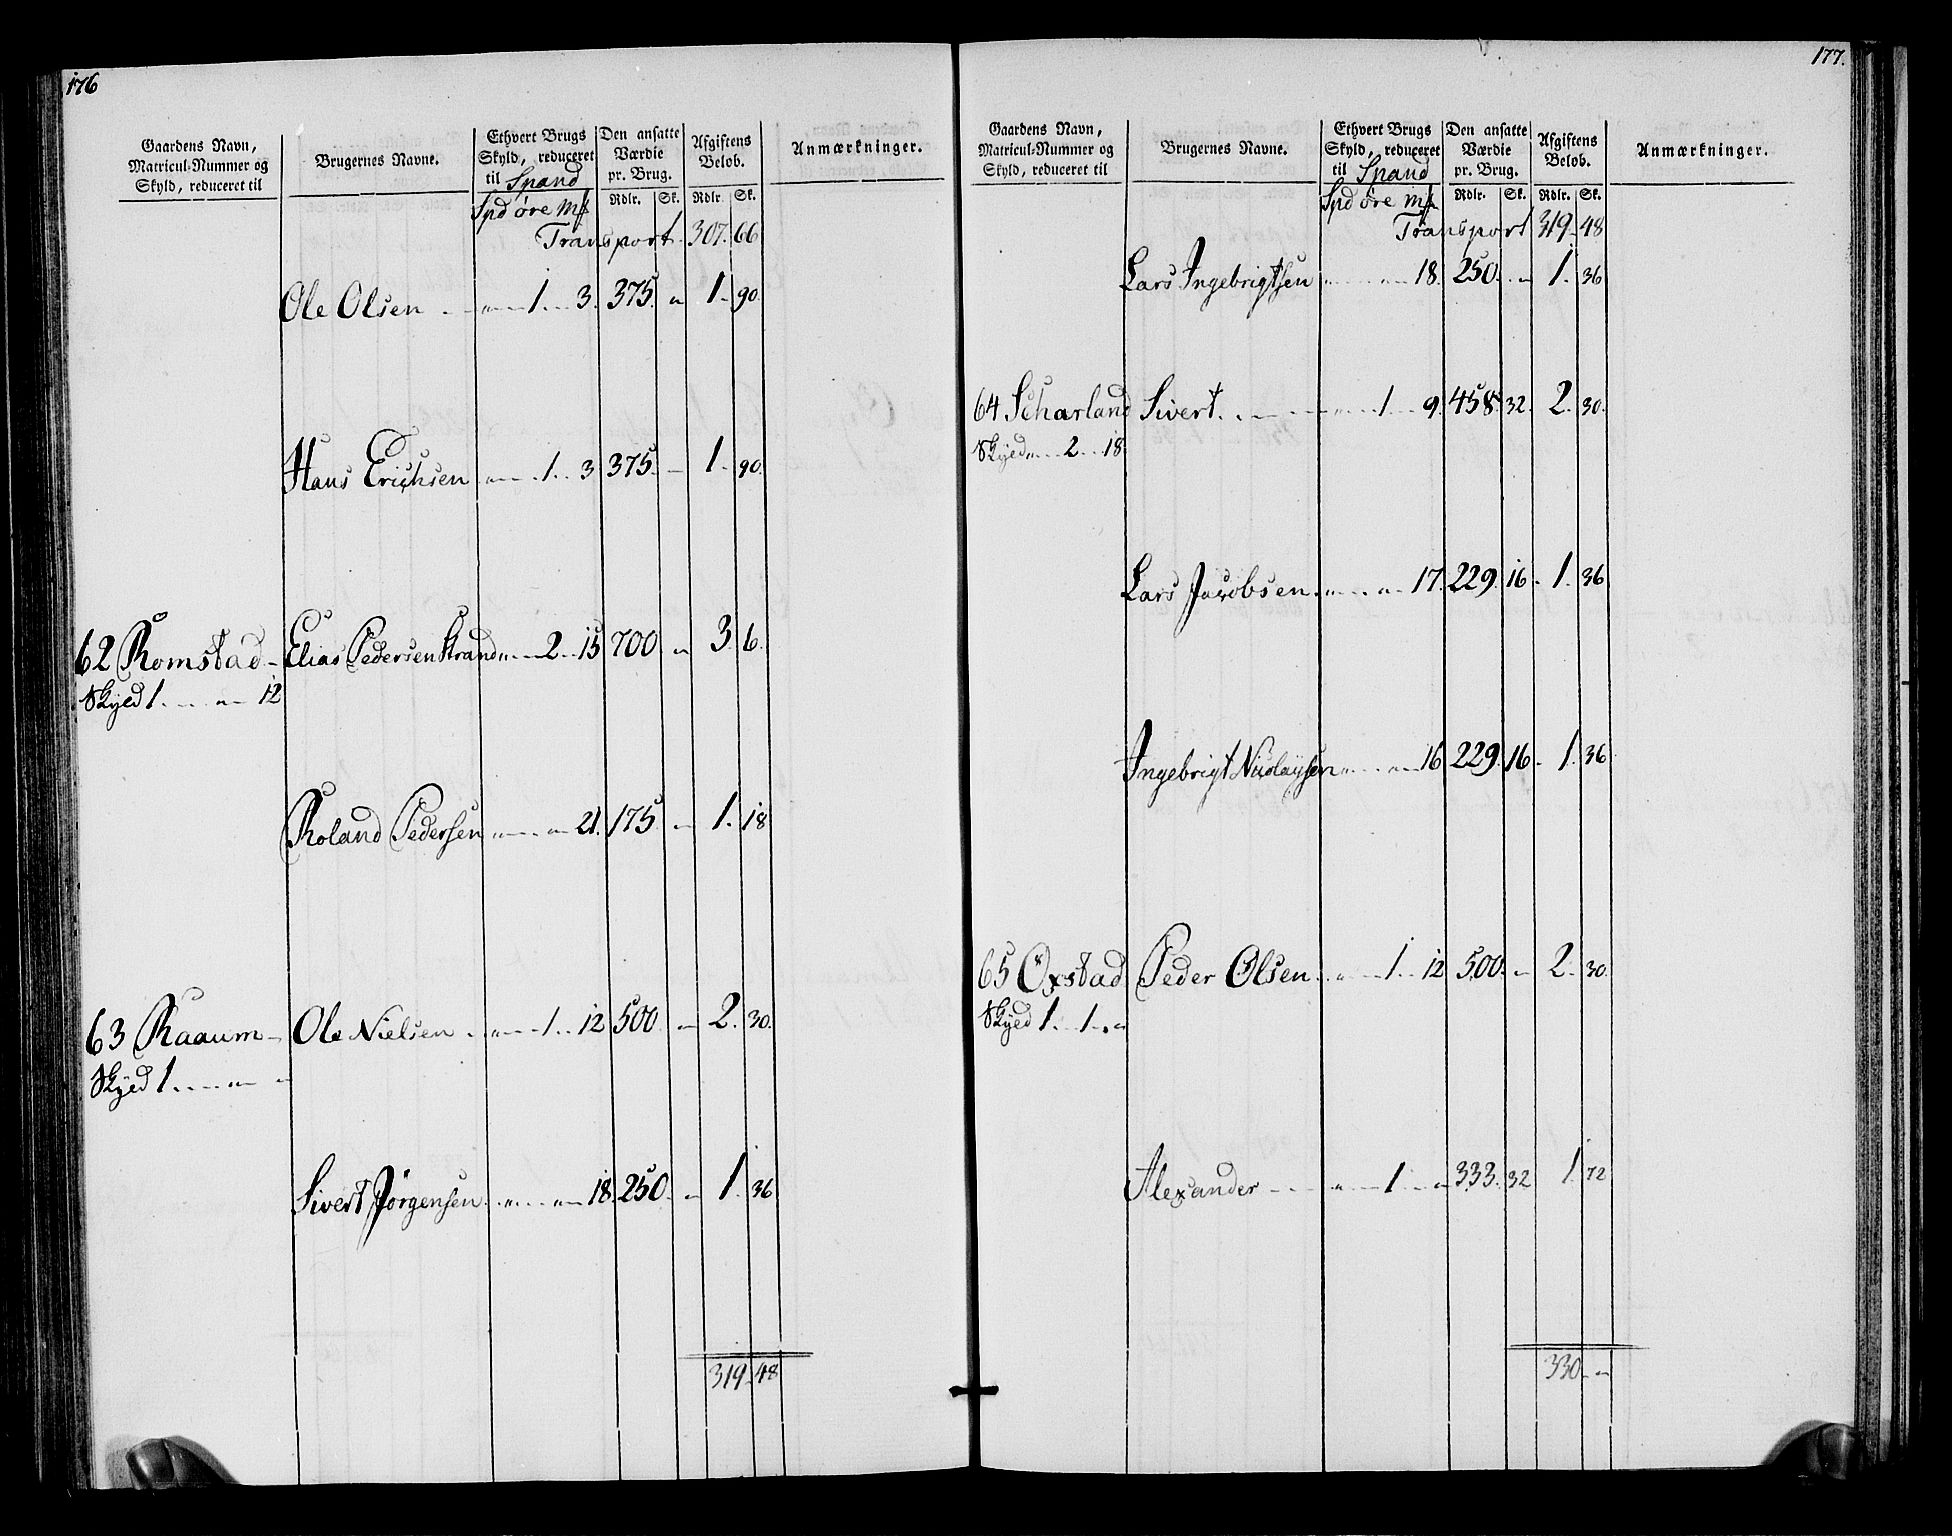 176
Gaardens Navn, Matricul-Nummer og Skyld, reduceret til
Brugernes Navne.
Ethvert Brugs Skyld, reduceret til Spand
Den ansatte Værdie pr. Brug.
Afgiftens Beløb.
Anmærkninger.
Spd øre Mk Rdlr. Sk. Rdlr. Sk.
Transport 307. 66
Ole Olsen 1. 3. 375. 1. 90.
Hans Erichsen 1. 3 375. 1. 90.
62 Romstad Elias Pedersen Strand 2 15 700 3. 6.
Skyld 1. 12
Roland Pedersen 21. 175 1. 18
63 Raaum Ole Nielsen 1. 12 500 2. 30.
Skyld 1.
Sivert Jørgensen 18. 250. 1. 36
319. 48
177.
Gaardens Navn, Matricul-Nummer og Skyld, reduceret til
Brugernes Navne.
Ethvert Brugs Skyld, reduceret til Spand
Den ansatte Værdie pr. Brug.
Afgiftens Beløb.
Anmærkninger.
Spd øre Mk Rdlr. Sk. Rdlr. Sk.
Transport 319. 48
Lars Ingebrigtsen 18. 250. 1. 36
64 Scharland Sivert 1 9. 458. 32. 2. 30.
Skyld 2. 18
Lars Jacobsen 17. 229. 16 1. 36
Ingebrigt Nicolaysen 16 229. 16 1. 36
65 Oxstad Peder Olsen 1. 12 500. 2. 30.
Skyld 1. 1.
Alexander 1. 333. 32 1. 72
330.